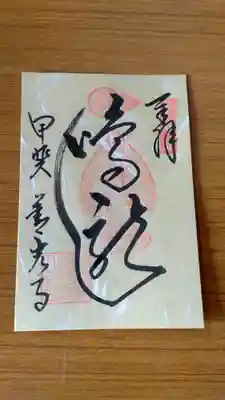 奉拝
鳴龍
甲斐 善光寺